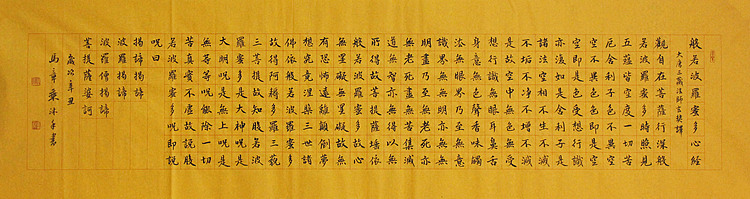 般若波羅蜜多心經
大唐三藏法師玄奘譯
觀自在菩薩行深般
若波羅蜜多時照見
五蘊皆空度一切苦
厄舍利子色不異空
空不異色色即是空
空即是色受想行識
亦復如是舍利子是
諸法空相不生不滅
不垢不淨不增不減
是故空中無色無受
想行識無眼耳鼻舌
身意無色聲香味觸
法無眼界乃至無意
識界無無明亦無無
明盡乃至無老死亦
無老死盡無苦集滅
道無智亦無得以無
所得故菩提薩埵依
般若波羅蜜多故心
無罣礙無罣礙故無
有恐怖遠離顛倒夢
想究竟涅槃三世諸
佛依般若波羅蜜多
故得阿耨多羅三藐
三菩提故知般若波
羅蜜多是大神咒是
大明咒是無上咒是
無等等咒能除一切
苦真實不虛故說般
若波羅蜜多咒即說
咒曰
揭諦揭諦
波羅揭諦
波羅僧揭諦
菩提薩婆訶
歲次辛丑
馬沐手書